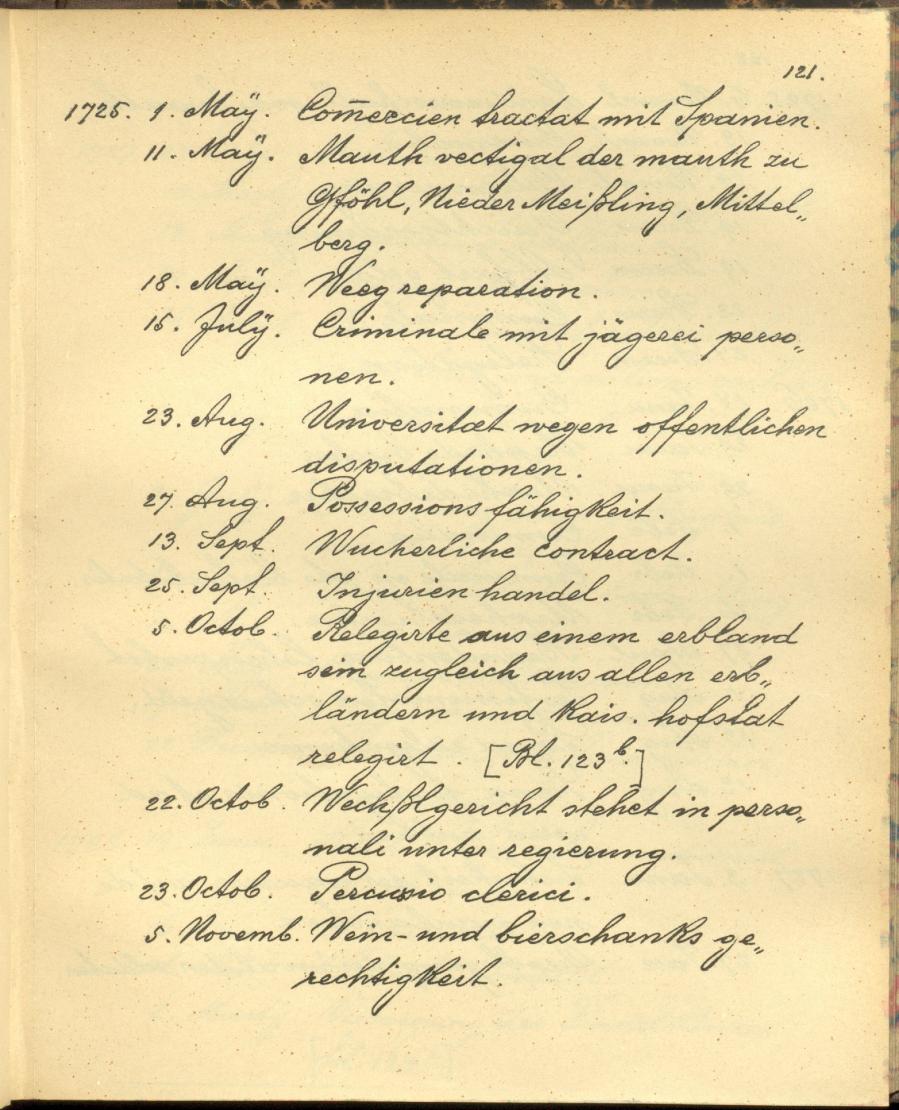 121.
1725. 1. Maÿ. Com̅ercien tractat mit Spanien.
11. Maÿ. Mauth vectigal der mauth zu
Gföhl, Nieder Meißling, Mittel„
berg.
18. Maÿ. Weeg reparation.
15. Julÿ. Criminale mit jägerei perso„
nen.
23. Aug. Universitæt wegen offentlichen
disputationen.
27. Aug. Possessions fähigkeit.
13. Sept. Wucherliche contract.
25. Sept Injurien handel.
5. Octob. Relegirte aus einem erbland
sein zugleich aus allen erb„
ländern und Kais. hofstat
relegirt. [Bl. 123b.]
22. Octob. Wechßlgericht stehet in perso„
nali unter regierung.
23. Octob. Percusio clerici.
5. Novemb. Wein- und bierschanks ge„
rechtigkeit.